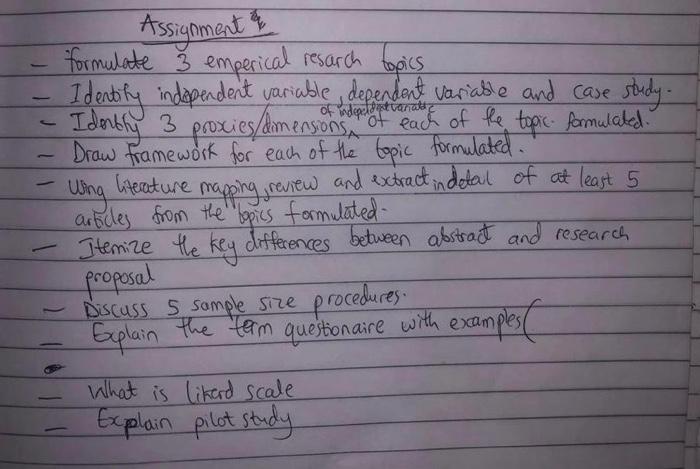 Assignment
- formulate 3 emperical resarch topics
- Identify independent variable, dependent variable and case study.
of independent variable
- Identify 3 proxies/dimensions ^ of each of the topic formulated.
- Draw framework for each of the topic formulated.
- Using literature mapping, review and extract in detail of at least 5
articles from the topics formulated.
- Itemize the key differences between abstract and research
proposal
- Discuss 5 sample size procedures.
- Explain the term questionaire with examples (
- What is likerd scale
- Explain pilot study